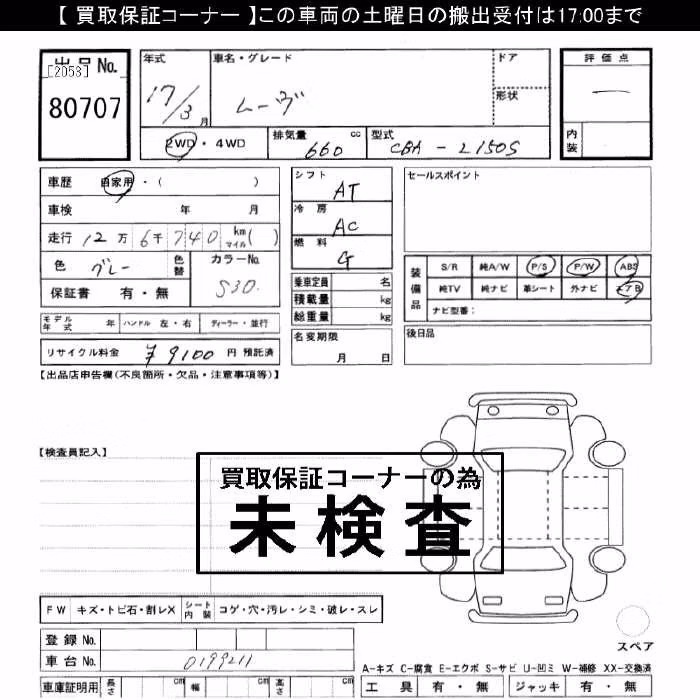 【 買取保証コーナー 】この車両の土曜日の搬出受付は17:00まで
出品No.
[2053]
80707
年式
17/3月
車名・グレード
ムーヴ
ドア
形状
評価点
—
内装
2WD・4WD
排気量 660 cc
型式 CBA - L150S
車歴 自家用・( )
車検 年 月
走行 12万 6千 740 km マイル ( )
色 グレー 色替
カラーNo. S30.
保証書 有・無
シフト AT
冷房 AC
燃料 G
乗車定員 名
積載量 kg
総重量 kg
セールスポイント
装備品
S/R 純A/W P/S P/W ABS
純TV 純ナビ 革シート 外ナビ エアB
ナビ型番:
モデル年式 年 ハンドル 左・右 ディーラー・並行
リサイクル料金 ¥9100 円 預託済
名変期限 月 日
後日品
【出品店申告欄(不良箇所・欠品・注意事項等)】
【検査員記入】
買取保証コーナーの為
未検査
FW キズ・トビ石・割レX シート内装 コゲ・穴・汚レ・シミ・破レ・スレ
登録No.
車台No. 0199211
スペア
A-キズ C-腐食 E-エクボ S-サビ U-凹ミ W-補修 XX-交換済
車庫証明用 長さ cm 幅 cm 高さ cm
工具 有・無 ジャッキ 有・無